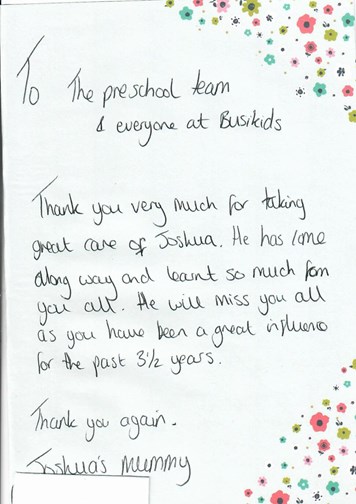 To The preschool team
& everyone at Busikids
Thank you very much for taking
great care of Joshua. He has come
along way and learnt so much from
you all. He will miss you all
as you have been a great influence
for the past 3½ years.
Thank you again.
Joshua's Mummy